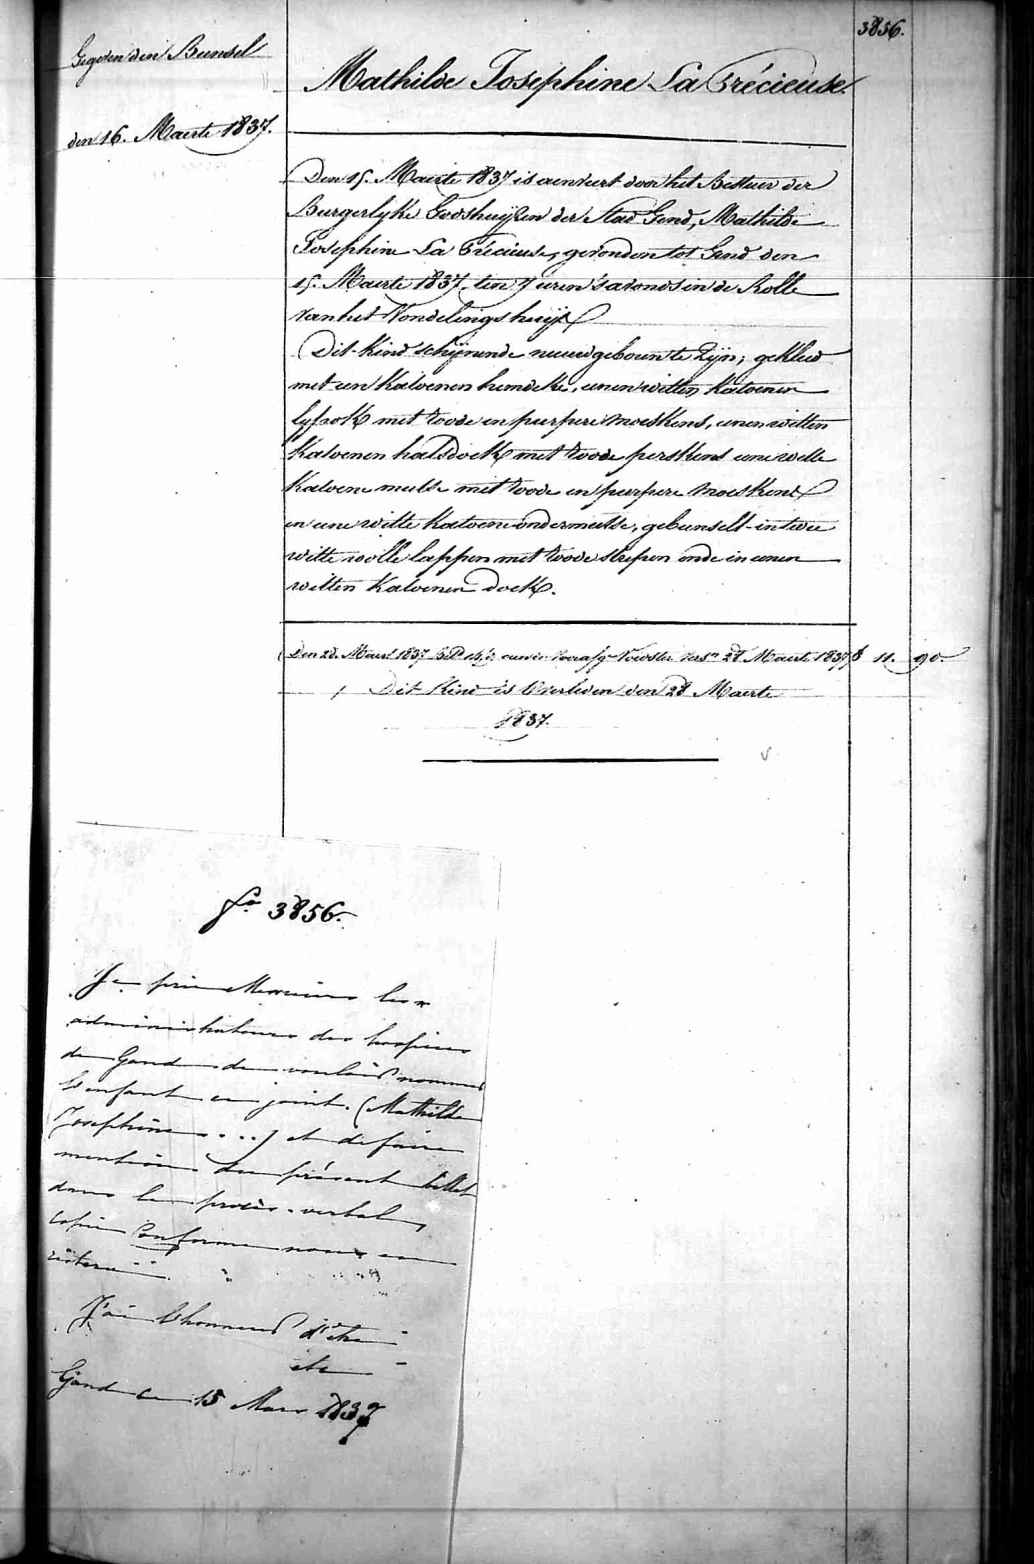 3856.
Gegeven den Bunsel
den 16. Maerte 1837.
Mathilde Josephine La Précieuse.
Den 15. Maerte 1837 is aenveert door het Bestuer der
Burgerlyke Godshuijzen der Stad Gend, Mathilde
Josephine La Précieuse, gevonden tot Gend den
15. Maerte 1837. ten 7 uren s'avonds in de Rolle
van het Vondelingshuijs
Dit kind schijnende nieuwgeboren te zijn; gekleed
met een katoenen hemdeke, eenen witten katoenen
lyfrok met roode en purpere moeskens, eenen witten
katoenen halsdoek met roode perskens eene witte
katoene mutse met roode en purpere moeskens
en eene witte katoene ondermutse, gebunselt in twee
witte wolle lappen met roode strepen ende in eenen
witten katoenen doek.
Den 28. Maert 1837 28 Maerte 1837 f 11. 90.
Dit Kind is Overleden den 28 Maerte
1837.
fo. 3856.
Je prie Messieurs les
administrateurs des hospices
de Gand de vouloir nommer
l'enfant ci joint. (Mathilde
Josephine....) et de faire
mention du présent billet
dans le procès-verbal,
copie conforme nous en
J'ai l'honneur d'être
etc
Gand ce 15 Mars 1837